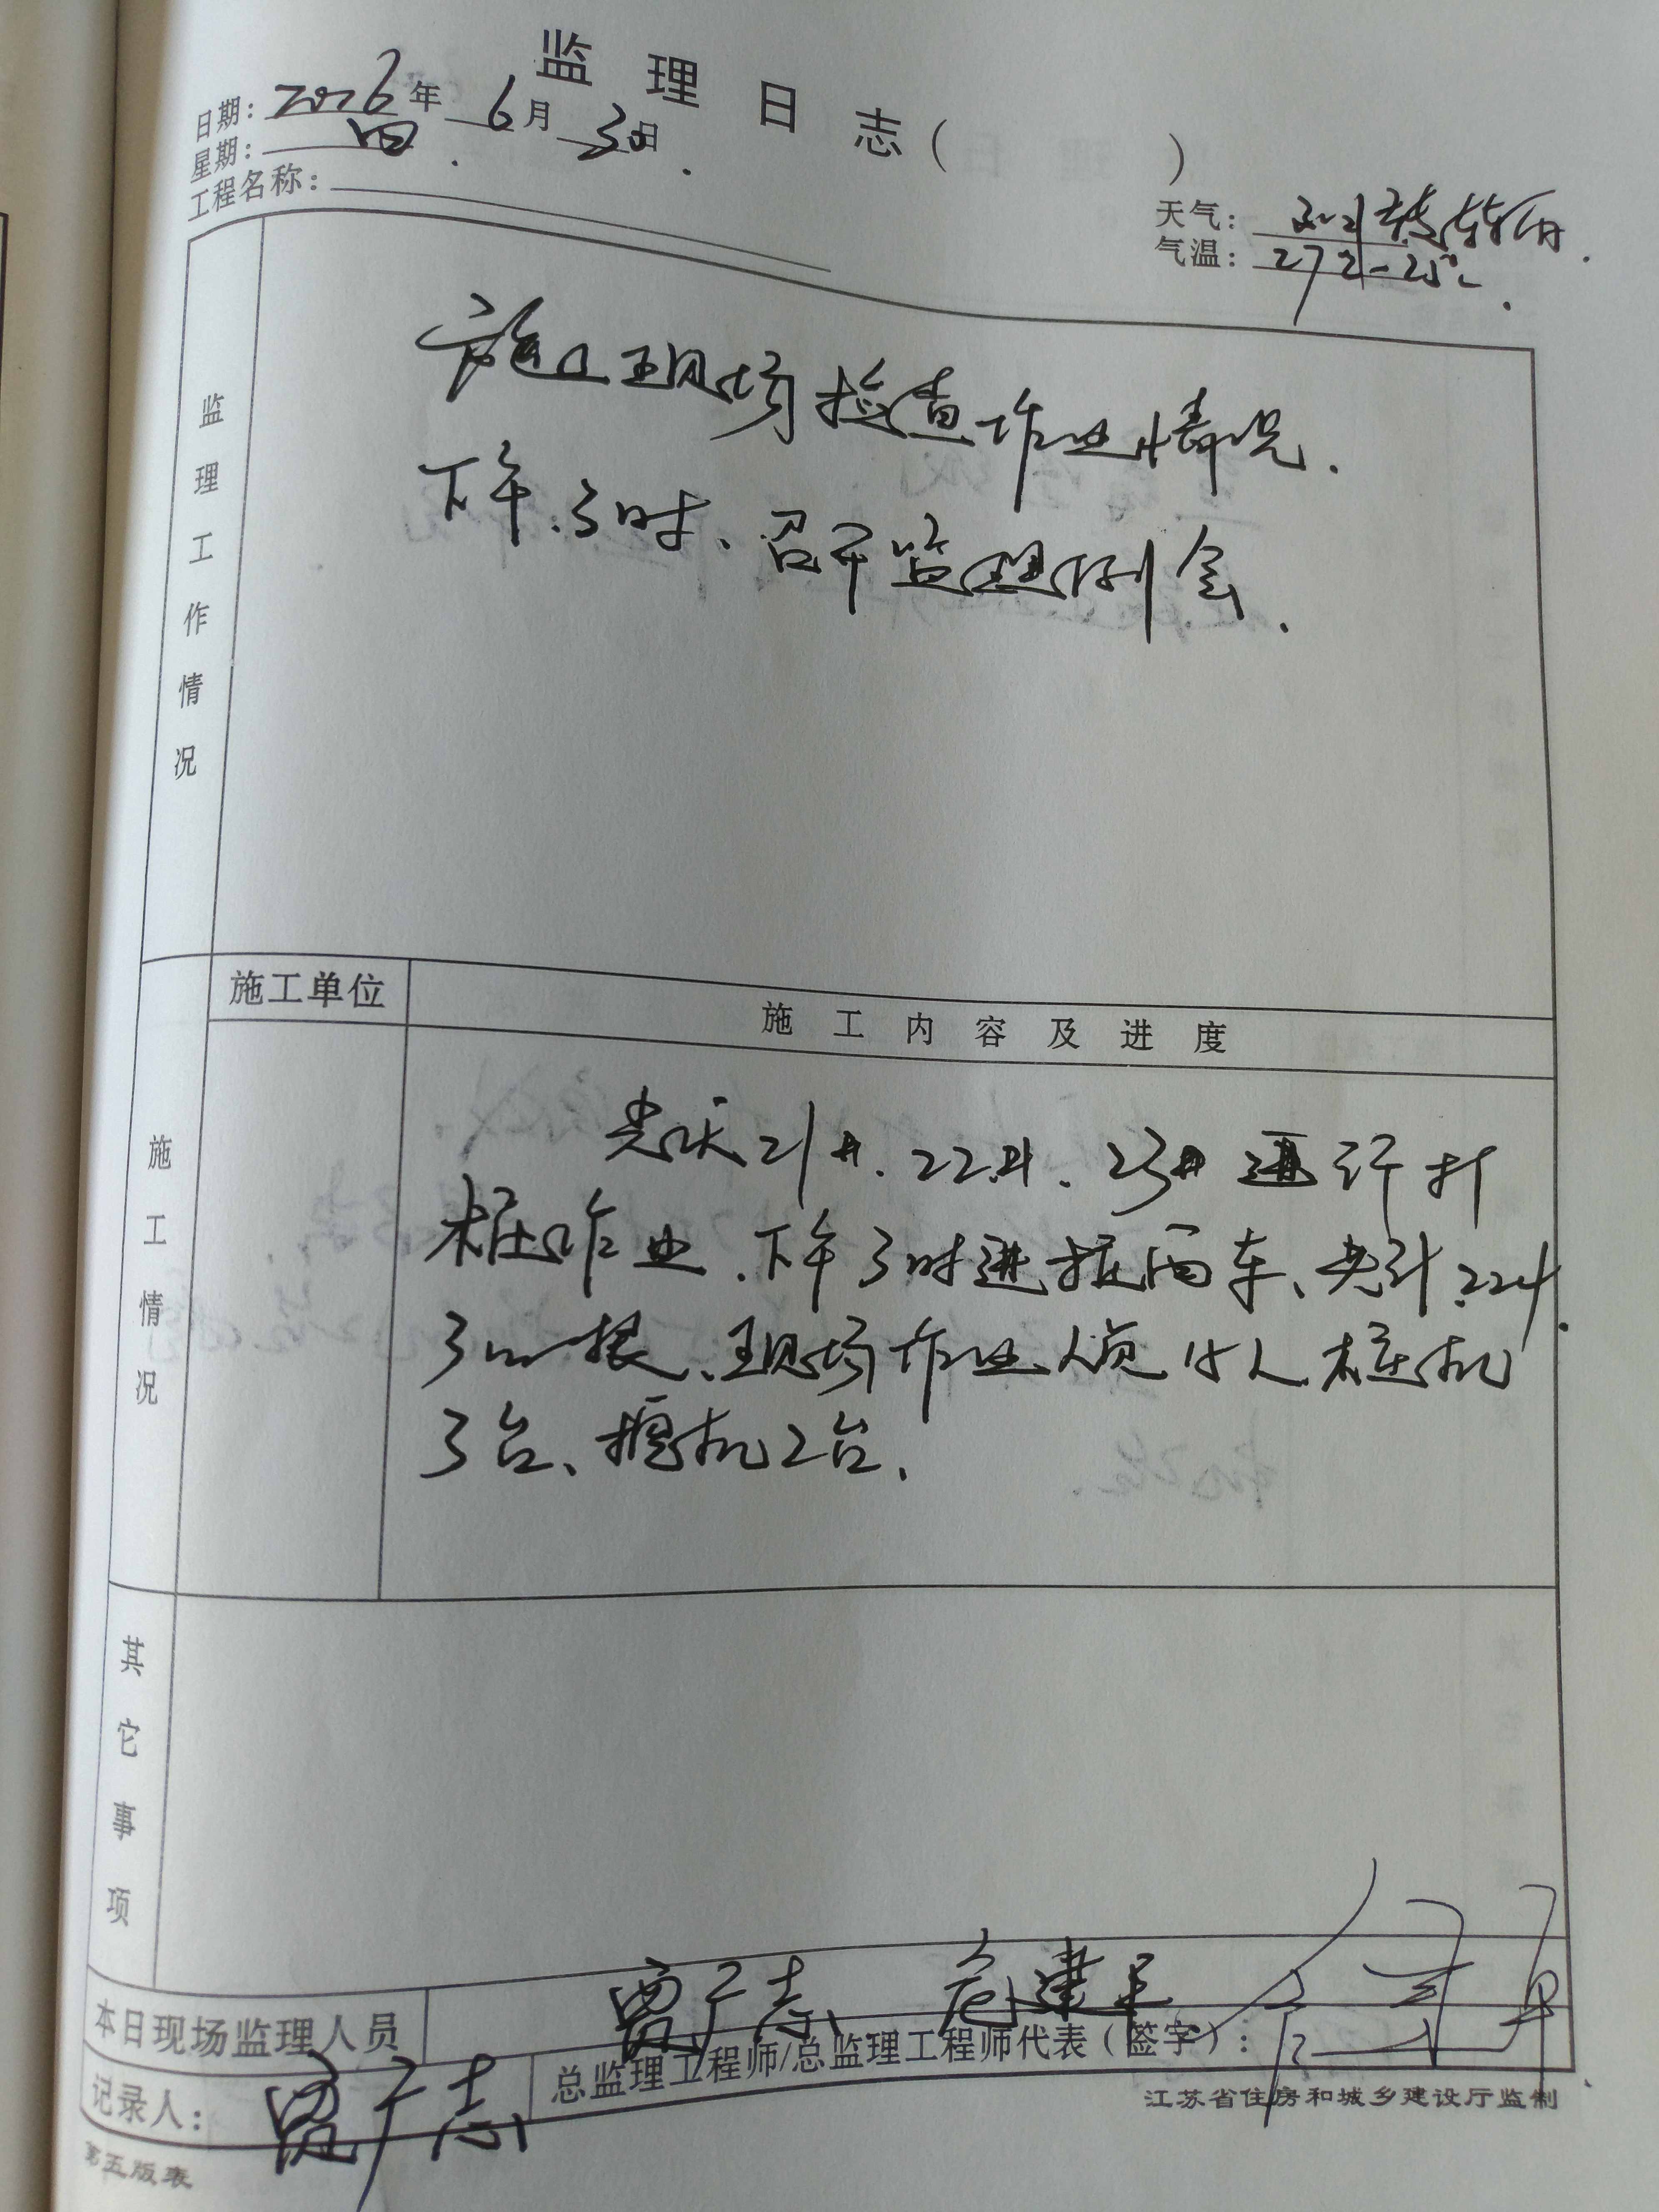 监理日志（ ）
日期：2026年6月30日
星期：四.
工程名称：
天气：转阵雨.
气温：
监理工作情况
施工现场检查作业情况.
下午.3时、召开监理例会.
施工单位
施工内容及进度
施工情况
光伏21#.22#.23#进行打
桩作业.下午3时进桩两车、共计
根、现场作业人员 人桩机
3台、挖机2台.
其它事项
本日现场监理人员
贾广志 建
记录人：贾广志
总监理工程师/总监理工程师代表（签字）：
江苏省住房和城乡建设厅监制
第五版表